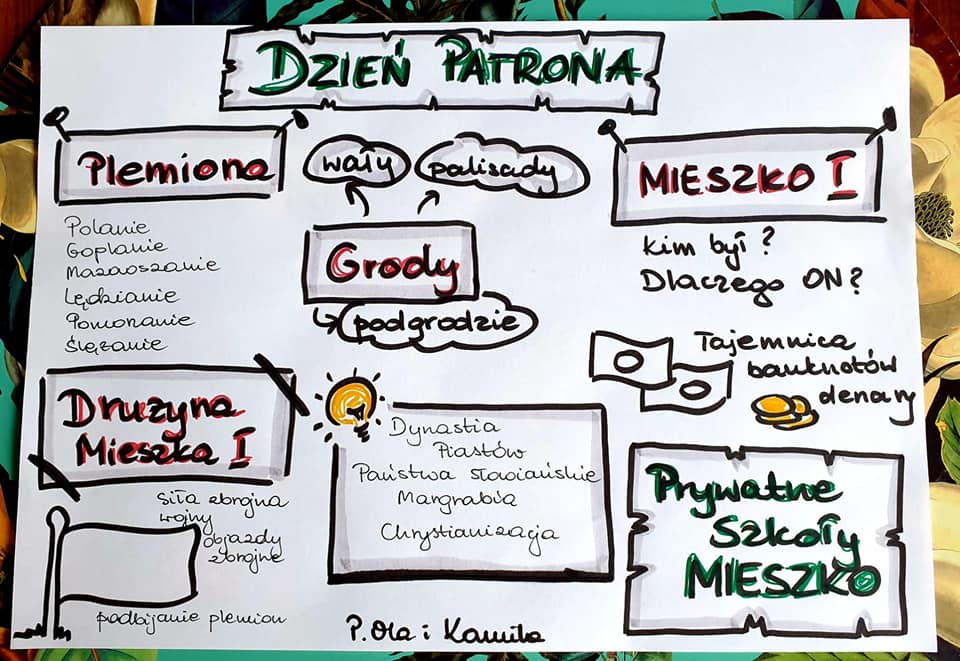 DZIEŃ PATRONA
Plemiona
Polanie
Goplanie
Mazowszanie
Lędzianie
Pomoranie
Ślężanie
wały
palisady
Grody
podgrodzie
MIESZKO I
Kim był?
Dlaczego ON?
Tajemnica
banknotów
denary
Drużyna
Mieszka I
siła zbrojna
wojny
objazdy
zbrojne
podbijanie plemion
Dynastia
Piastów
Państwa słowiańskie
Margrabia
Chrystianizacja
Prywatne
Szkoły
MIESZKO
P. Ola i Kamila